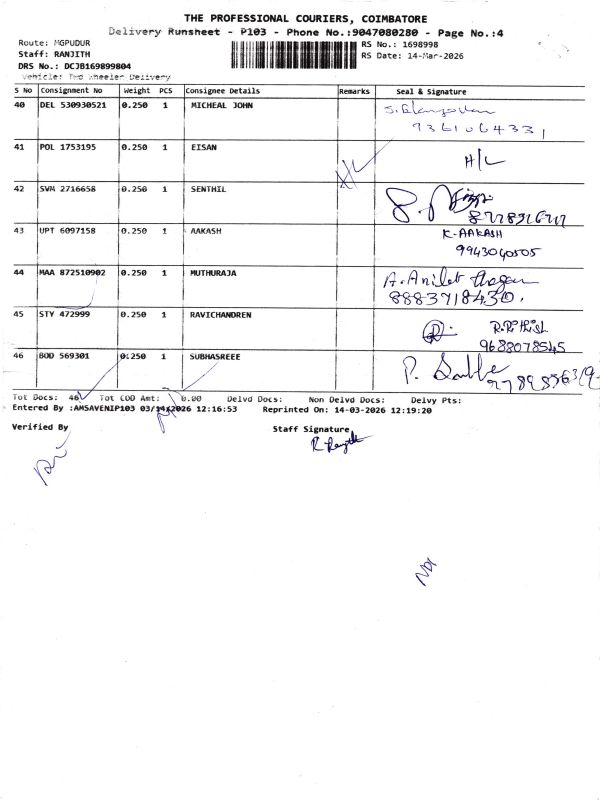 THE PROFESSIONAL COURIERS, COIMBATORE
Delivery Runsheet - P103 - Phone No.:9047080280 - Page No.:4
Route: MGPUDUR
RS No.: 1698998
Staff: RANJITH
RS Date: 14-Mar-2026
DRS No.: DCJB169899804
Vehicle: Two Wheeler Delivery
S No Consignment No Weight PCS Consignee Details Remarks Seal & Signature
40 DEL 530930521 0.250 1 MICHEAL JOHN
9361064331
41 POL 1753195 0.250 1 EISAN H/L H/L
42 SVM 2716658 0.250 1 SENTHIL
43 UPT 6097158 0.250 1 AAKASH K-AAKASH
9943040505
44 MAA 872510902 0.250 1 MUTHURAJA
8883718430.
45 STY 472999 0.250 1 RAVICHANDREN
9688078545
46 BOD 569301 0.250 1 SUBHASREEE
Tot Docs: 46 Tot COD Amt: 0.00 Delvd Docs: Non Delvd Docs: Delvy Pts:
Entered By :AMSAVENIP103 03/14/2026 12:16:53 Reprinted On: 14-03-2026 12:19:20
Verified By Staff Signature